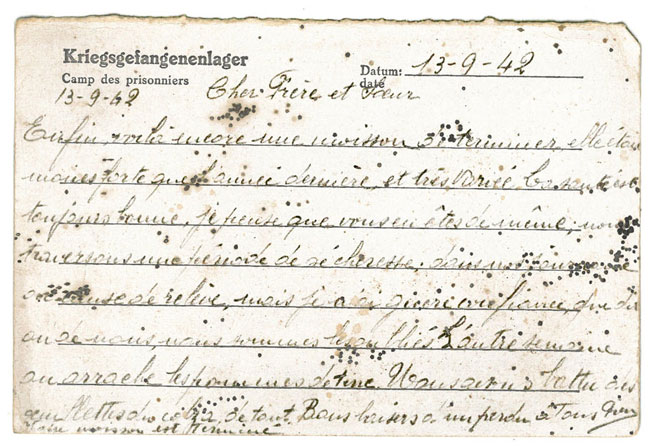 Kriegsgefangenenlager
Camp des prisonniers
Datum: 13-9-42
date
13-9-42 Cher Frère et Sœur
Enfin, voilà encore une moisson de terminer, elle était
moins forte que l'année dernière, et très variée la santé est
toujours bonne, je pense que vous en êtes de même, nous
traversons une période de sécheresse, dans nos
cause de relève, mais je n'ai guère confiance,
on de nous nous sommes les oubliés L'autre semaine
on arrache les pommes de terre Nous avons battu des
de tout. Bons baisers d'un perdu à Tous
moisson est terminé